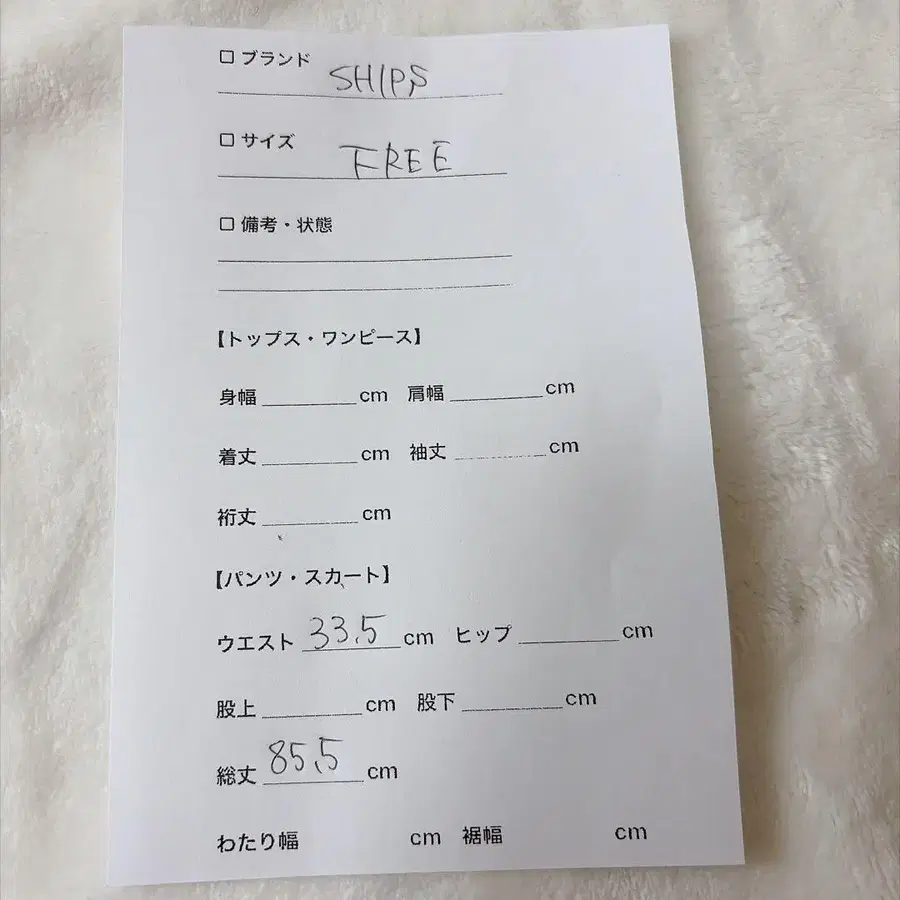 □ ブランド SHIPS
□ サイズ FREE
□ 備考・状態
【トップス・ワンピース】
身幅 cm 肩幅 cm
着丈 cm 袖丈 cm
裄丈 cm
【パンツ・スカート】
ウエスト 33.5 cm ヒップ cm
股上 cm 股下 cm
総丈 85.5 cm
わたり幅 cm 裾幅 cm